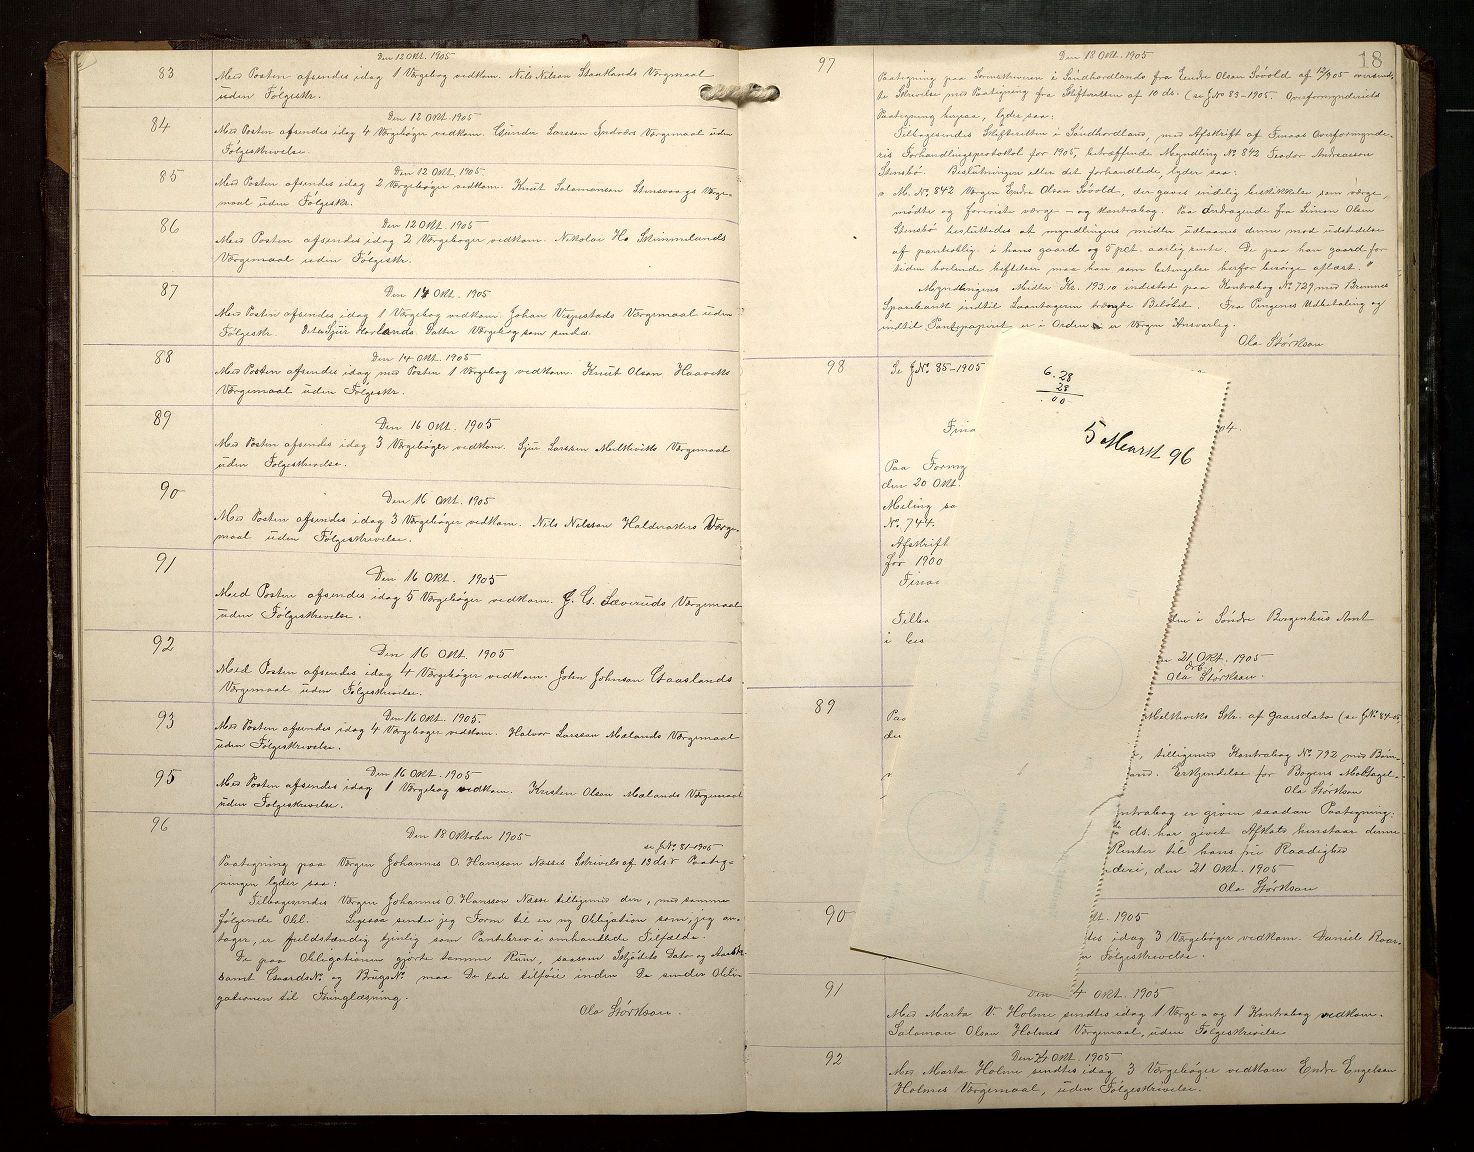 83
Den 12 Okt. 1905
Med Posten afsendes idag 1 Værgebog vedkom. Nils Nilsen Staalands Værgemaal
uden Følgeskr.
84
Den 12 Okt. 1905
Med Posten afsendes idag 4 Værgebøger vedkom. Gunder Larsson Værgemaal uden
Følgeskrivelse.
85
Den 12 Okt. 1905
Med Posten afsendes idag 2 Værgebøger vedkom. Knut Salamonsen Stensvaags Værge-
maal uden Følgeskr.
86
Den 12 Okt. 1905
Med Posten afsendes idag 2 Værgebøger vedkom. Nikolai Hs Skimmelands
Værgemaal uden Følgeskr.
87
Den 14 Okt. 1905
Med Posten afsendes idag 1 Værgebog vedkom. Johan Vespestads Værgemaal uden
Følgeskr. Datter Værgebog som sendes.
88
Den 14 Okt. 1905
Med Posten afsendes idag med Posten 1 Værgebog vedkom. Knut Olson Haaviks
Værgemaal uden Følgeskr.
89
Den 16 Okt. 1905
Med Posten afsendes idag 3 Værgebøger vedkom. Sjur Larssen Melkeviks Værgemaal
uden Følgeskrivelse.
90
Den 16 Okt. 1905
Med Posten afsendes idag 3 Værgebøger vedkom. Nils Nelsson Halderakers Værge-
maal uden Følgeskrivelse.
91
Den 16 Okt. 1905
Med Posten afsendes idag 5 Værgebøger vedkom. J. G. Sæveruds Værgemaal
uden Følgeskrivelse.
92
Den 16 Okt. 1905
Med Posten afsendes idag 4 Værgebøger vedkom. John Johnson Gaaslands
Værgemaal uden Følgeskrivelse.
93
Den 16 Okt. 1905.
Med Posten afsendes idag 4 Værgebøger vedkom. Halvor Larsson Mælands Værgemaal
uden Følgeskrivelse.
95
Den 16 Okt. 1905
Med Posten afsendes idag 1 Værgebog vedkom. Kristen Olson Mælands Værgemaal
uden Følgeskrivelse.
96
Den 18 Oktober 1905
se J.No. 81-1905
Paategning paa Værgen Johannes O. Hansson Næsses Skrivels af 13 ds. Paateg-
ningen lyder saa:
Tilbagesendes Værgen Johannes O. Hansson Næsse tilligemed den, med samme
følgende Obl. Ligesaa sender jeg Form til en ny Obligation som, jeg an-
tager, er fuldstændig tjenlig som Pantebrev i omhandlede Tilfælde.
De paa Obligationen gjorte tomme Rum, saasom Skjødets Dato og
samt GaardsNo. og BrugsNo. maa De lade tilføie inden De sender Obli-
gationen til Thinglæsning.
Ola Størkson.
18
97
Den 18 Okt. 1905
Paategning paa Sorenskriveren i Søndhordlands fra Endre Olson Søvold af 12/9 05 oversend-
te Skrivelse med Paategning fra Skifteretten af 10 ds. (se J.No 83-1905. Overformynderiets
Paategning herpaa, lyder saa:
Tilbagesendes Skifteretten i Søndhordland, med Afskrift af Finaas Overformynde-
ris Forhandlingsprotokol for 1905, betræffende Myndling No. 842 Feodor Andreasson
Stensbø. Beslutningen eller det forhandlede, lyder saa:
M. No. 842 Værgen Endre Olson Søvold, der gaves endelig beskikkelse som værge,
mødte og foreviste værge- og kontrabog. Paa andragende fra Simon Olsen
Stensbø besluttedes at myndlingens midler udlaanes denne mod udstedelse
af panteoblig. i hans gaard og 5 pct. aarlig rente. De paa han gaard for
tiden heftelser maa han som betingelse herfor besørge aflæst."
Myndlingens Midler Kr. 193.10 indestod paa Kontrabog No. 729 med Bremnes
Sparebank indtil Laantageren Beløbet. Fra Pengenes Udbetaling og
indtil Pantepapiret er i Orden er Værgen Ansvarlig.
Ola Størkson
98
Se J.No. 85-1905
6.28
28
.00
5 Marst 96
Fina
04.
Paa Formy
den 20 Okt.
Meling sa
No. 744.
Afskrift
for 1900
Finai
Tilba
den i Søndre Bergenhus Amt
i
21 Okt. 1905
Ola Størkson.
89
Paa
Melkeviks Skr. af gaarsdato (se J.No. 84-05
de
tilligemed Kontrabog No. 792 med
and. Erkjendelse for Bogens Modtagel-
Ola Størkson
ntrabog er given saadan Paategning:
ds. har givet Afkald henstaar denne
Renter til hans frie Raadighed
deri, den 21 Okt. 1905
Ola Størkson
90
kt. 1905
tes idag 3 Værgebøger vedkom. Daniel Roa
n Følgeskrivelse.
91
Den 4 Okt. 1905
Med Marta V. Holme sendtes idag 1 Værge- og 1 Kontrabog vedkom.
Salamon Olson Holmes Værgemaal, uden Følgeskrivelse
92
Den 24 Okt. 1905
Med Marta Holme sendtes idag 3 Værgebøger vedkom Endre Engelsen
Holmes Værgemaal, uden Følgeskrivelse.